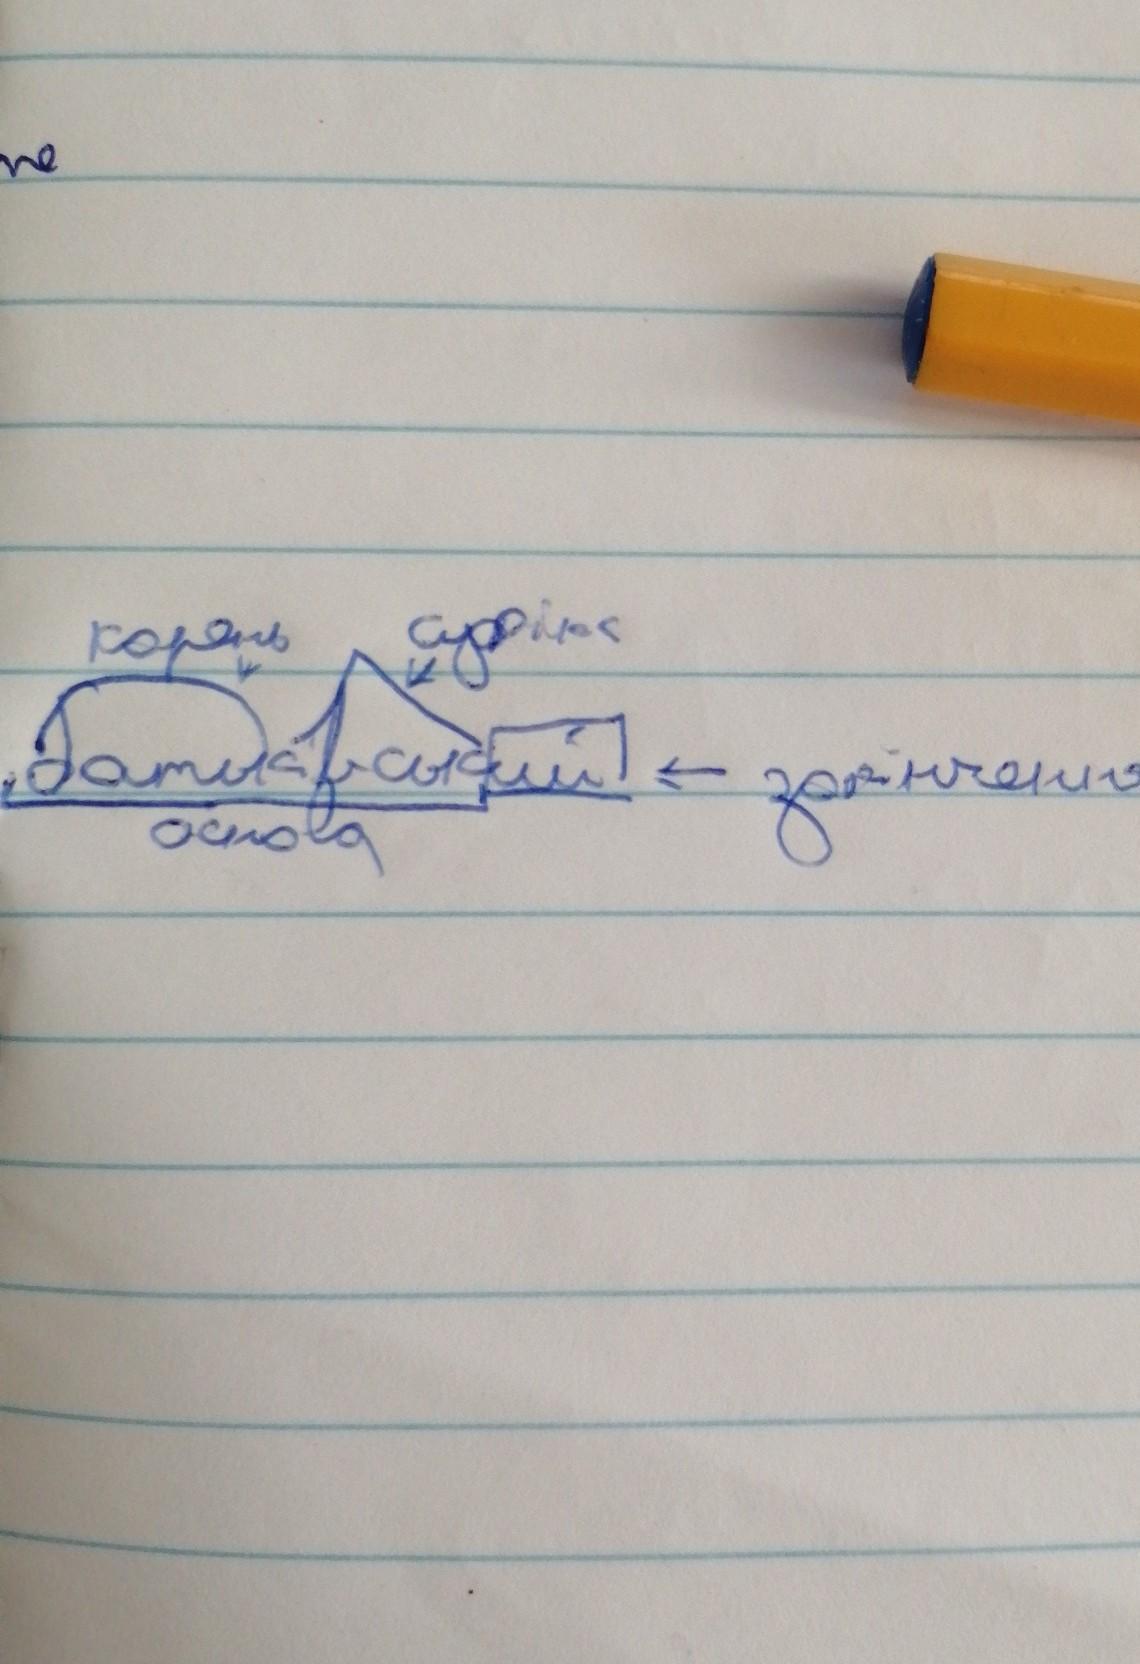 корень суфікс
батьківський ← закінчення
основа